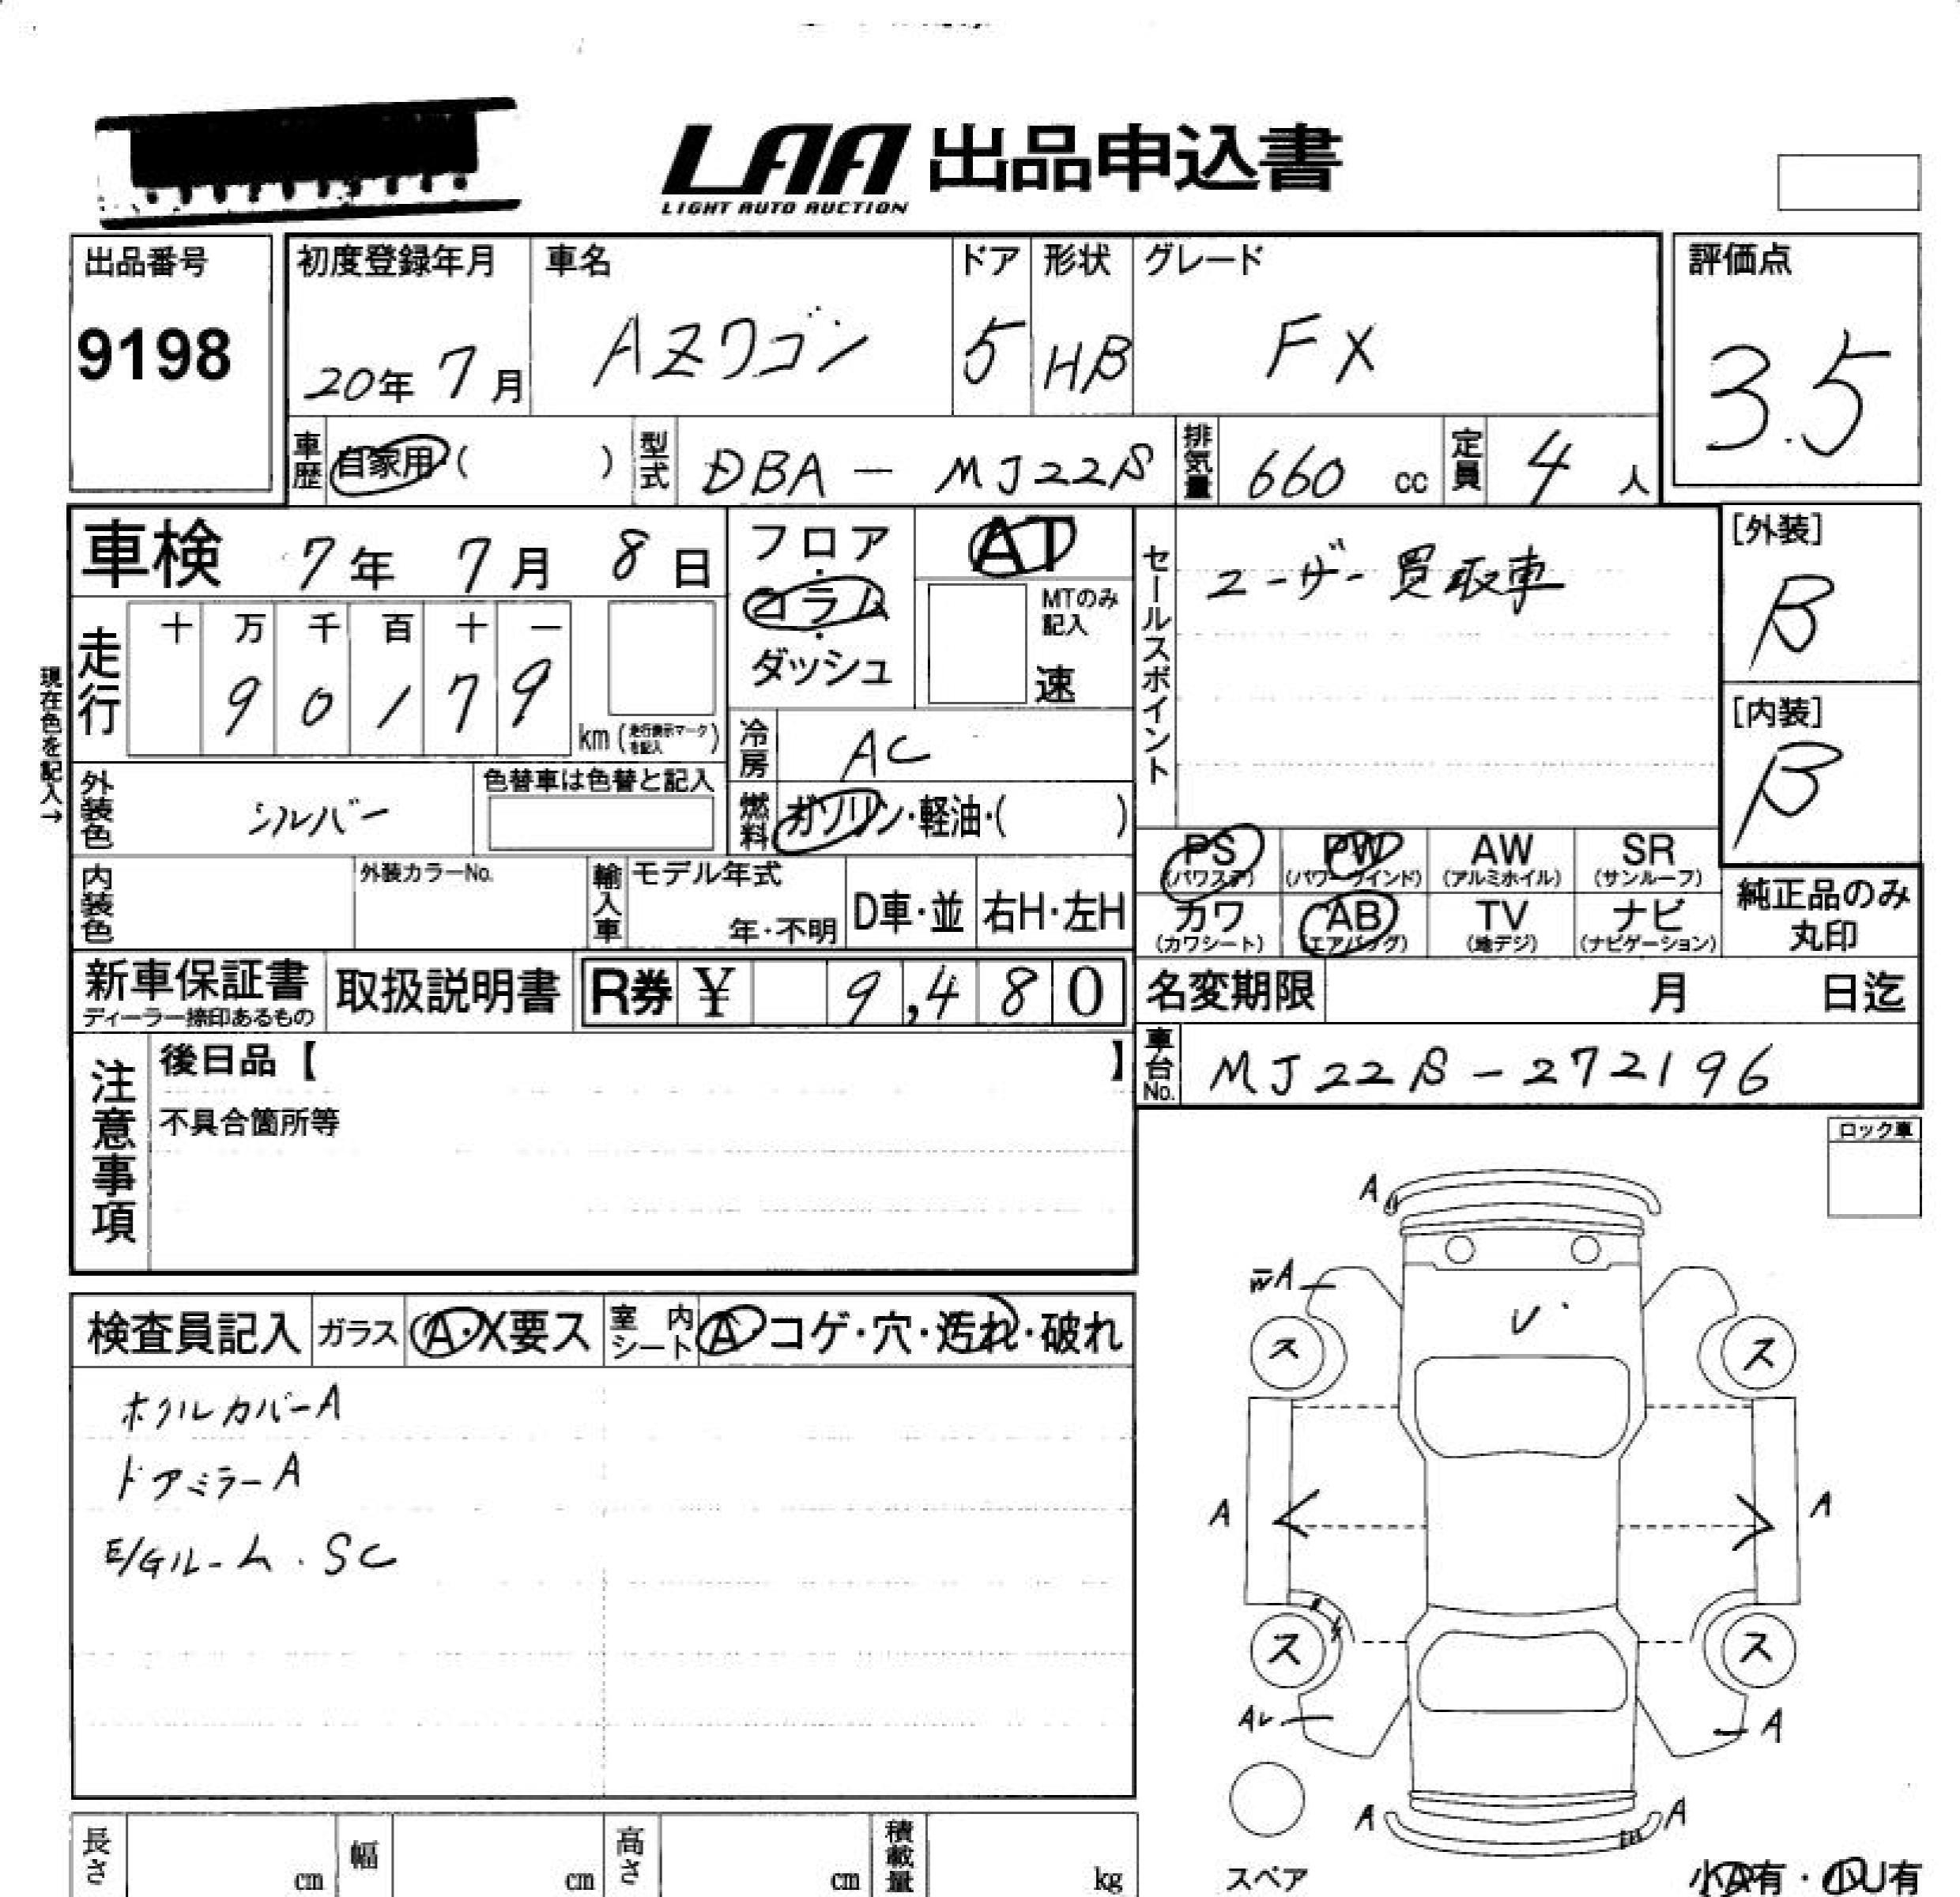 LAA 出品申込書
LIGHT AUTO AUCTION
出品番号
9198
初度登録年月
20年 7月
車名
AZワゴン
ドア
5
形状
HB
グレード
FX
評価点
3.5
車歴
自家用・( )
型式
DBA - MJ22S
排気量
660 cc
定員
4 人
車検 7年 7月 8日
フロア・コラム・ダッシュ
AT
MTのみ記入
速
セールスポイント
ユーザー買取車
[外装]
B
[内装]
B
現在色を記入→
走行
十 万 千 百 十 一
9 0 1 7 9
km (走行表示マークを記入)
冷房
AC
外装色
シルバー
色替車は色替と記入
燃料
ガソリン・軽油・( )
PS (パワステ)
PW (パワーウインド)
AW (アルミホイル)
SR (サンルーフ)
カワ (カワシート)
AB (エアバッグ)
TV (地デジ)
ナビ (ナビゲーション)
純正品のみ丸印
内装色
外装カラーNo.
輸入車
モデル年式
年・不明
D車・並
右H・左H
新車保証書
ディーラー捺印あるもの
取扱説明書
R券 ¥ 9,480
名変期限 月 日迄
車台No.
MJ22S-272196
注意事項
後日品【 】
不具合箇所等
ロック車
検査員記入
ガラス
A・X要ス
室内シート
A コゲ・穴・汚れ・破れ
ホイルカバーA
ドアミラーA
E/Gルーム・SC
A
A
U
ス
ス
A
A
ス
ス
A
A
A
スペア
小A有・小U有
長さ cm
幅 cm
高さ cm
積載量 kg